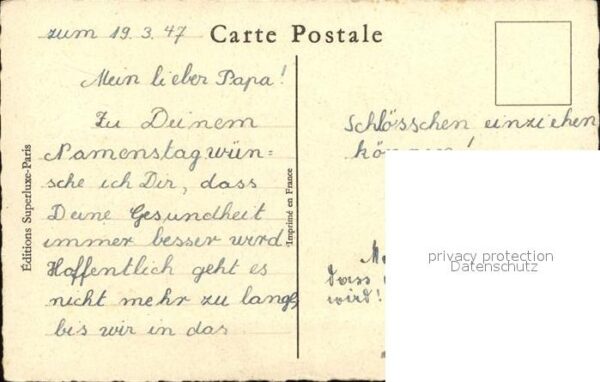 zum 19.3.47
Carte Postale
Mein lieber Papa!
Zu Deinem
Namenstag wün=
sche ich Dir, dass
Deine Gesundheit
immer besser wird.
Hoffentlich geht es
nicht mehr zu lange,
bis wir in das
Schlösschen einziehen
dass
wird!
Éditions Superluxe-Paris
Imprimé en France
privacy protection
Datenschutz